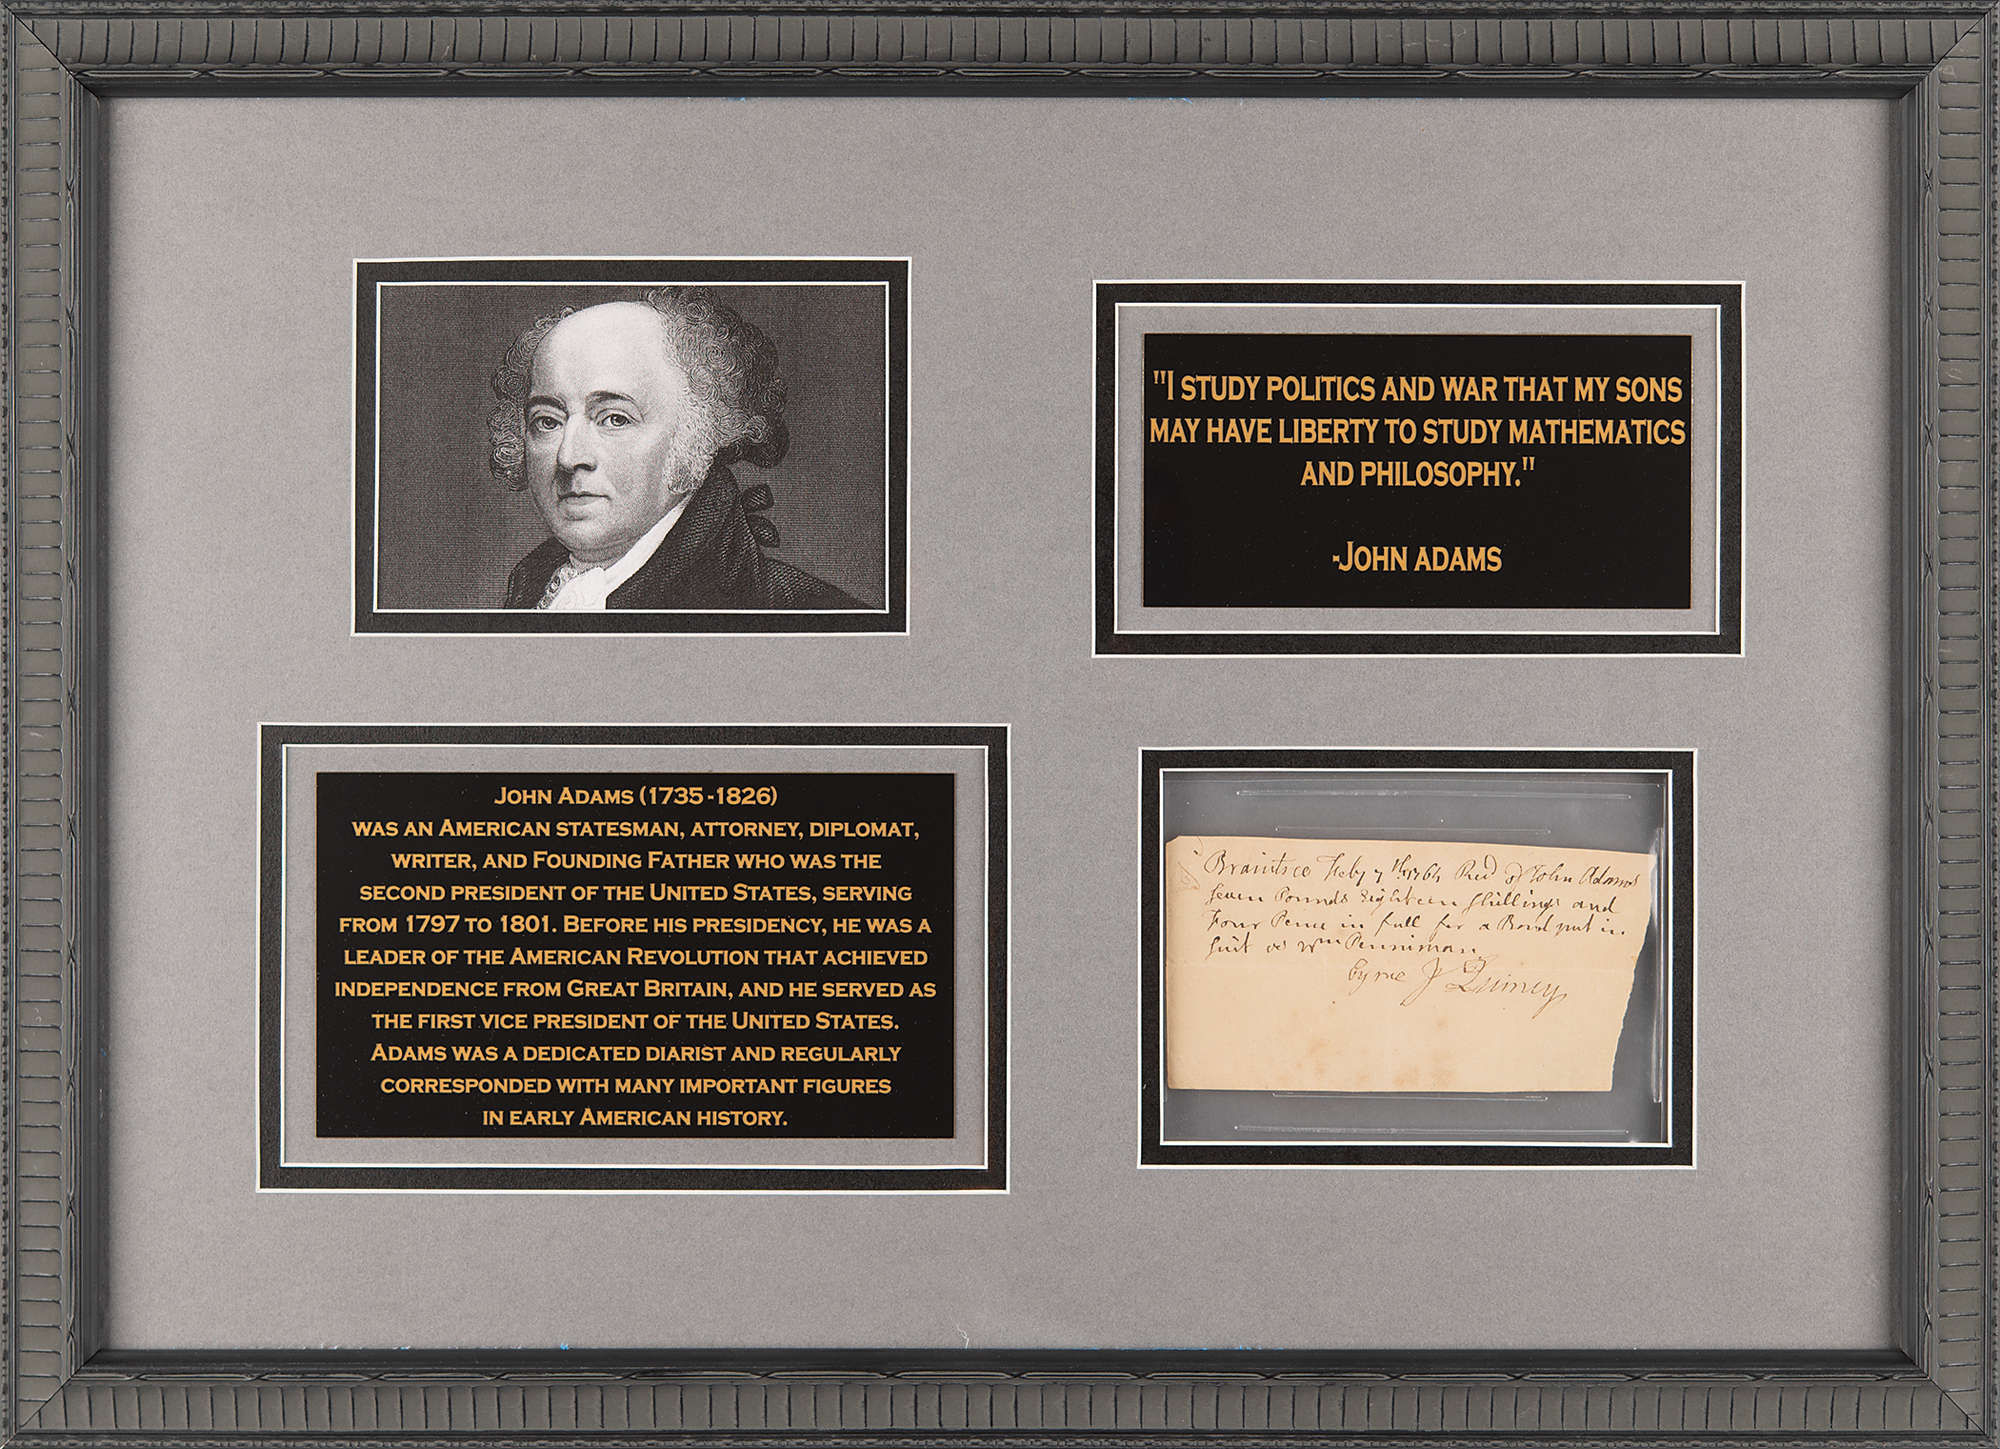 "I STUDY POLITICS AND WAR THAT MY SONS
MAY HAVE LIBERTY TO STUDY MATHEMATICS
AND PHILOSOPHY."
-JOHN ADAMS
JOHN ADAMS (1735-1826)
WAS AN AMERICAN STATESMAN, ATTORNEY, DIPLOMAT,
WRITER, AND FOUNDING FATHER WHO WAS THE
SECOND PRESIDENT OF THE UNITED STATES, SERVING
FROM 1797 TO 1801. BEFORE HIS PRESIDENCY, HE WAS A
LEADER OF THE AMERICAN REVOLUTION THAT ACHIEVED
INDEPENDENCE FROM GREAT BRITAIN, AND HE SERVED AS
THE FIRST VICE PRESIDENT OF THE UNITED STATES.
ADAMS WAS A DEDICATED DIARIST AND REGULARLY
CORRESPONDED WITH MANY IMPORTANT FIGURES
IN EARLY AMERICAN HISTORY.
Braintree Feby 7th Recd of John Adams
Seven Pounds Eighteen Shillings and
Four Pence in full for a Bond put in
Suit vs Wm Penniman
J Quincy